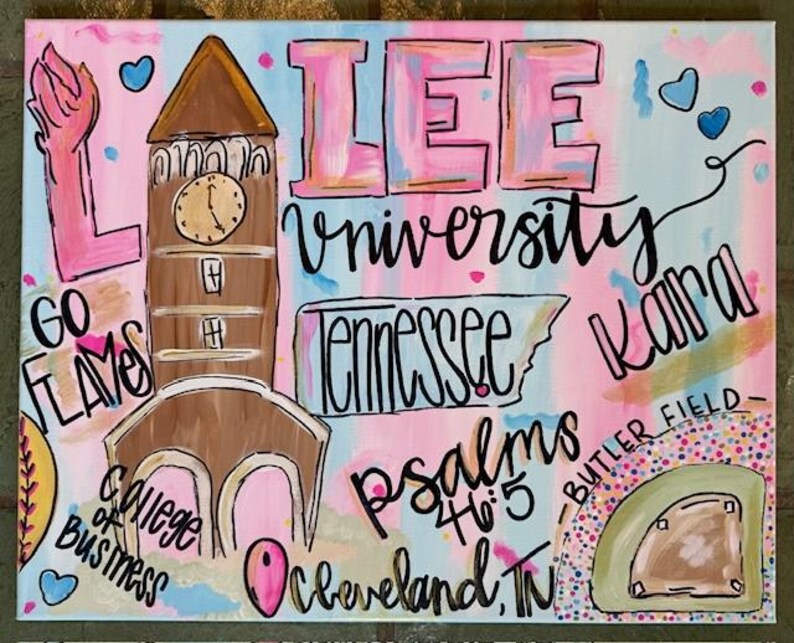 L
LEE
University
GO
FLAMES
Tennessee
Kara
BUTLER FIELD
psalms
46:5
College
of
Business
Cleveland, TN